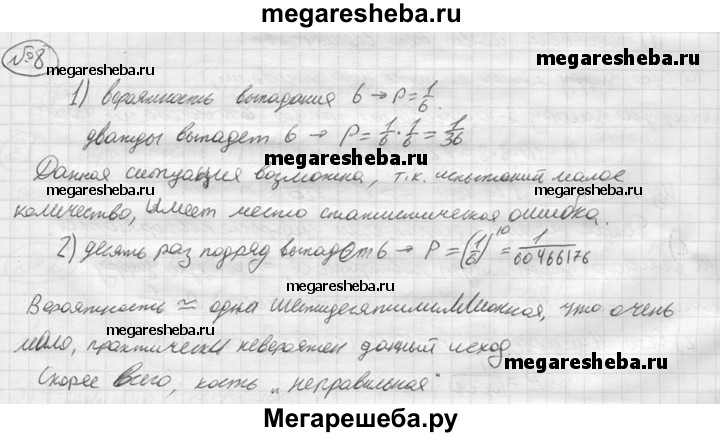 megaresheba.ru
№8
megaresheba.ru
megaresheba.ru
1) вероятность выпадания 6 → P = 1/6.
megaresheba.ru
дважды выпадет 6 → P = 1/6 · 1/6 = 1/36
Данная ситуация возможна, т.к. испытаний малое
megaresheba.ru
количество, имеет место статистическая ошибка.
2) десять раз подряд выпадет 6 → P = (1/6)^10 = 1/60466176
megaresheba.ru
Вероятность ≃ одна шестидесятимиллионная, что очень
megaresheba.ru
мало, практически невероятен данный исход
megaresheba.ru
Скорее всего, кость „неправильная“
Мегарешеба.ру